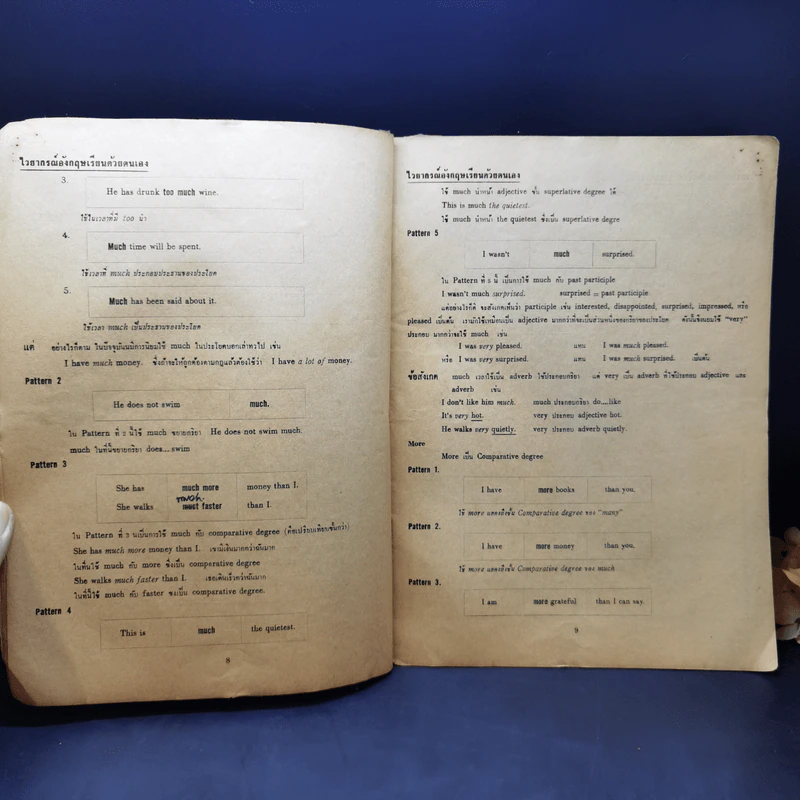 ไวยากรณ์อังกฤษเรียนด้วยตนเอง
3.
He has drunk too much wine.
ใช้ในเวลาที่มี too นำ
4.
Much time will be spent.
ใช้เวลาที่ much ประกอบประธานของประโยค
5.
Much has been said about it.
ใช้เวลา much เป็นประธานของประโยค
แต่ อย่างไรก็ตาม ในปัจจุบันนี้มีการนิยมใช้ much ในประโยคบอกเล่าทั่วไป เช่น
I have much money. ซึ่งถ้าจะให้ถูกต้องตามกฎแล้วต้องใช้ว่า I have a lot of money.
Pattern 2
He does not swim much.
ใน Pattern ที่ 2 นี้ใช้ much ขยายกริยา He does not swim much.
much ในที่นี้ขยายกริยา does....swim
Pattern 3
She has much more money than I.
much
She walks must faster than I.
ใน Pattern ที่ 3 นี้เป็นการใช้ much กับ comparative degree (คือเปรียบเทียบขั้นกว่า)
She has much more money than I. เขามีเงินมากกว่าฉันมาก
ในที่นี้ใช้ much กับ more ซึ่งเป็น comparative degree
She walks much faster than I. เธอเดินเร็วกว่าฉันมาก
ในที่นี้ใช้ much กับ faster ซึ่งเป็น comparative degree.
Pattern 4
This is much the quietest.
8
ไวยากรณ์อังกฤษเรียนด้วยตนเอง
ใช้ much นำหน้า adjective ขั้น superlative degree ได้
This is much the quietest.
ใช้ much นำหน้า the quietest ซึ่งเป็น superlative degre
Pattern 5
I wasn't much surprised.
ใน Pattern ที่ 5 นี้ เป็นการใช้ much กับ past participle
I wasn't much surprised. surprised = past participle
แต่อย่างไรก็ดี จะสังเกตเห็นว่า participle เช่น interested, disappointed, surprised, impressed, หรือ
pleased เป็นต้น เรามักใช้เหมือนเป็น adjective มากกว่าที่จะเป็นส่วนหนึ่งของกริยาของประโยค ดังนั้นจึงนิยมใช้ "very"
ประกอบ มากกว่าจะใช้ much เช่น
I was very pleased. แทน I was much pleased.
หรือ I was very surprised. แทน I was much surprised. เป็นต้น
ข้อสังเกต much เวลาใช้เป็น adverb ใช้ประกอบกริยา แต่ very เป็น adverb ที่ใช้ประกอบ adjective และ
adverb เช่น
I don't like him much. much ประกอบกริยา do....like
It's very hot. very ประกอบ adjective hot.
He walks very quietly. very ประกอบ adverb quietly.
More
More เป็น Comparative degree
Pattern 1.
I have more books than you.
ใช้ more แสดงถึงขั้น Comparative degree ของ "many"
Pattern 2.
I have more money than you.
ใช้ more แสดงถึงขั้น Comparative degree ของ much
Pattern 3.
I am more grateful than I can say.
9